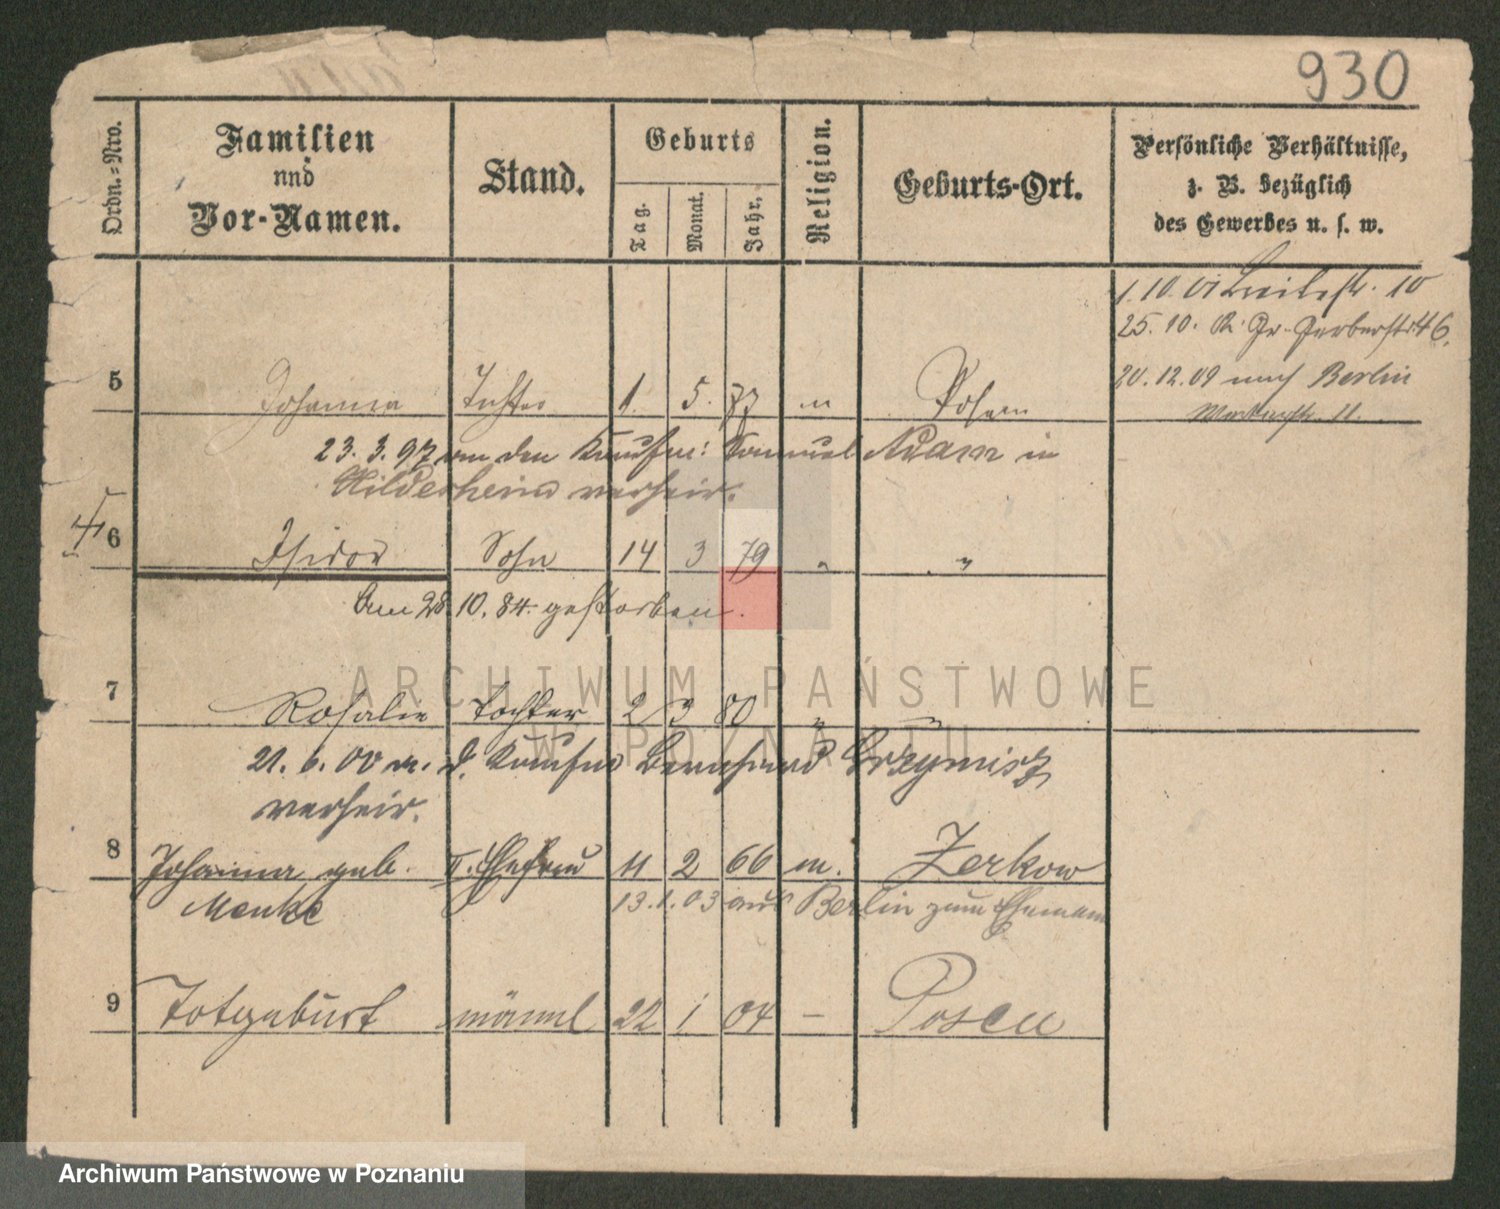 930
Ordn.-Nro.
Familien
und
Vor-Namen.
Stand.
Geburts
Tag.
Monat.
Jahr.
Religion.
Geburts-Ort.
Persönliche Verhältnisse,
z. B. bezüglich
des Gewerbes u. s. w.
1.10.01 Breitestr. 10
25.10. Gr. Gerberstr 46.
20.12.09 nach Berlin
11.
5 Johanna Tochter 1. 5. 77 " Posen
23.3.97 an den Kaufm: Samuel Adam in
Hildesheim verheir.
6 Isidor Sohn 14 3 79 " "
Am 28.10.84 gestorben.
7 Rosalie Tochter 2 3 80 " "
21.6.00 m. d. Kaufm Bernhard Grzymisz
verheir.
8 Johanna geb. II. Ehefrau 11 2 66 m. Zerkow
Menke 13.1.03 aus Berlin zum Ehemann
9 Totgeburt männl 22 1 04 – Posen
ARCHIWUM PAŃSTWOWE
W POZNANIU
Archiwum Państwowe w Poznaniu